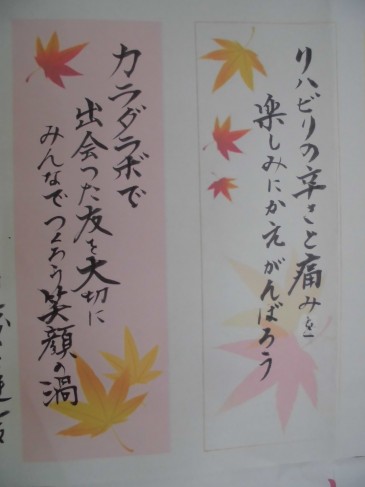 リハビリの辛さと痛みを
楽しみにかえがんばろう
カラダラボで
出会った友を大切に
みんなでつくろう笑顔の渦